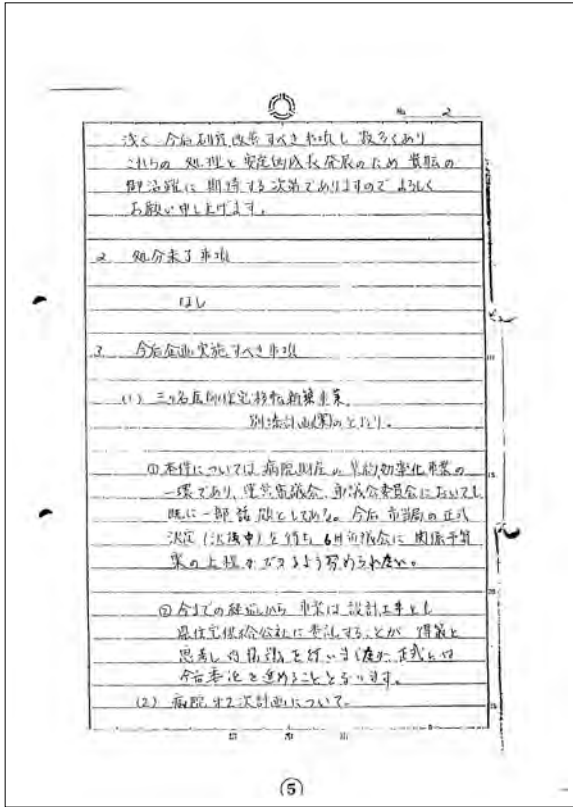 No 2
浅く 今后研究改善すべき事項も 数多くあり
これらの 処理と 安定的成長発展のため 貴殿の
御活躍に 期待する次第でありますので よろしく
お願い申し上げます。
2 処分未了事項
なし
3 今后企画実施すべき事項
(1) 三ツ名医師住宅移転新築事業
別添計画(案)のとおり。
① 本件については 病院財産の 集約効率化事業の
一環であり、運営審議会、市議会委員会においても
既に一部 話題としてある。今后 市当局の 正式
決定(決議中)を待ち 6月市議会に 関係予算
案の上程ができるよう努められたい。
② 今までの経過から 事業は 設計工事とも
県住宅供給公社に委託することが 得策と
思考し 内協議を行いましたが、正式には
今后委託を進めることとなります。
(2) 病院 第2次計画について。
10
15
20
25
⑤